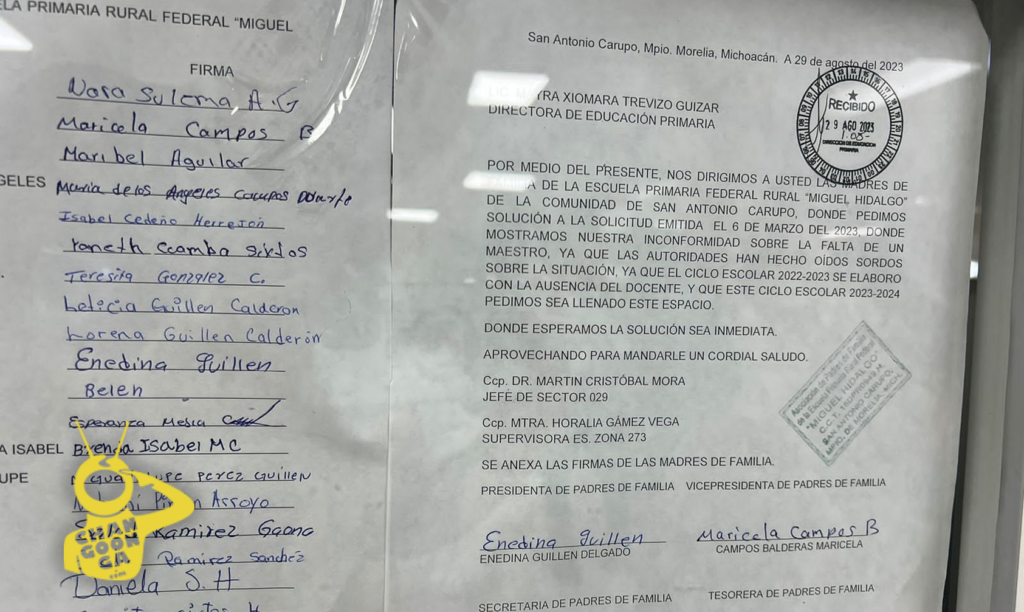 LA PRIMARIA RURAL FEDERAL “MIGUEL
FIRMA
Nora Sulema A.G
Maricela Campos B
Maribel Aguilar
GELES
Maria de los Angeles Campos
Isabel Cedeño Herrejón
Yaneth
Teresita Gonzalez C.
Leticia Guillen Calderon
Lorena Guillen Calderón
Enedina Guillen
Belen
Esperanza Mesia
A ISABEL
Brenda Isabel MC
UPE
Perez Guillen
Arroyo
Ramirez Gaona
Ramirez Sanchez
Daniela S.H
CHAN
GOON
GA
.com
San Antonio Carupo, Mpio. Morelia, Michoacán. A 29 de agosto del 2023
XIOMARA TREVIZO GUIZAR
DIRECTORA DE EDUCACIÓN PRIMARIA
RECIBIDO
29 AGO 2023
DIRECCION DE EDUCACION
PRIMARIA
POR MEDIO DEL PRESENTE, NOS DIRIGIMOS A USTED LAS MADRES DE
DE LA ESCUELA PRIMARIA FEDERAL RURAL “MIGUEL HIDALGO”
DE LA COMUNIDAD DE SAN ANTONIO CARUPO, DONDE PEDIMOS
SOLUCIÓN A LA SOLICITUD EMITIDA EL 6 DE MARZO DEL 2023, DONDE
MOSTRAMOS NUESTRA INCONFORMIDAD SOBRE LA FALTA DE UN
MAESTRO, YA QUE LAS AUTORIDADES HAN HECHO OÍDOS SORDOS
SOBRE LA SITUACIÓN, YA QUE EL CICLO ESCOLAR 2022-2023 SE ELABORO
CON LA AUSENCIA DEL DOCENTE, Y QUE ESTE CICLO ESCOLAR 2023-2024
PEDIMOS SEA LLENADO ESTE ESPACIO.
DONDE ESPERAMOS LA SOLUCIÓN SEA INMEDIATA.
APROVECHANDO PARA MANDARLE UN CORDIAL SALUDO.
Ccp. DR. MARTIN CRISTÓBAL MORA
JEFE DE SECTOR 029
Ccp. MTRA. HORALIA GÁMEZ VEGA
SUPERVISORA ES. ZONA 273
SE ANEXA LAS FIRMAS DE LAS MADRES DE FAMILIA.
Asociación de Padres de Familia
"MIGUEL HIDALGO"
SAN ANTONIO CARUPO,
MPIO. DE MORELIA, MICH.
PRESIDENTA DE PADRES DE FAMILIA VICEPRESIDENTA DE PADRES DE FAMILIA
Enedina Guillen
Maricela Campos B
ENEDINA GUILLEN DELGADO
CAMPOS BALDERAS MARICELA
SECRETARIA DE PADRES DE FAMILIA
TESORERA DE PADRES DE FAMILIA